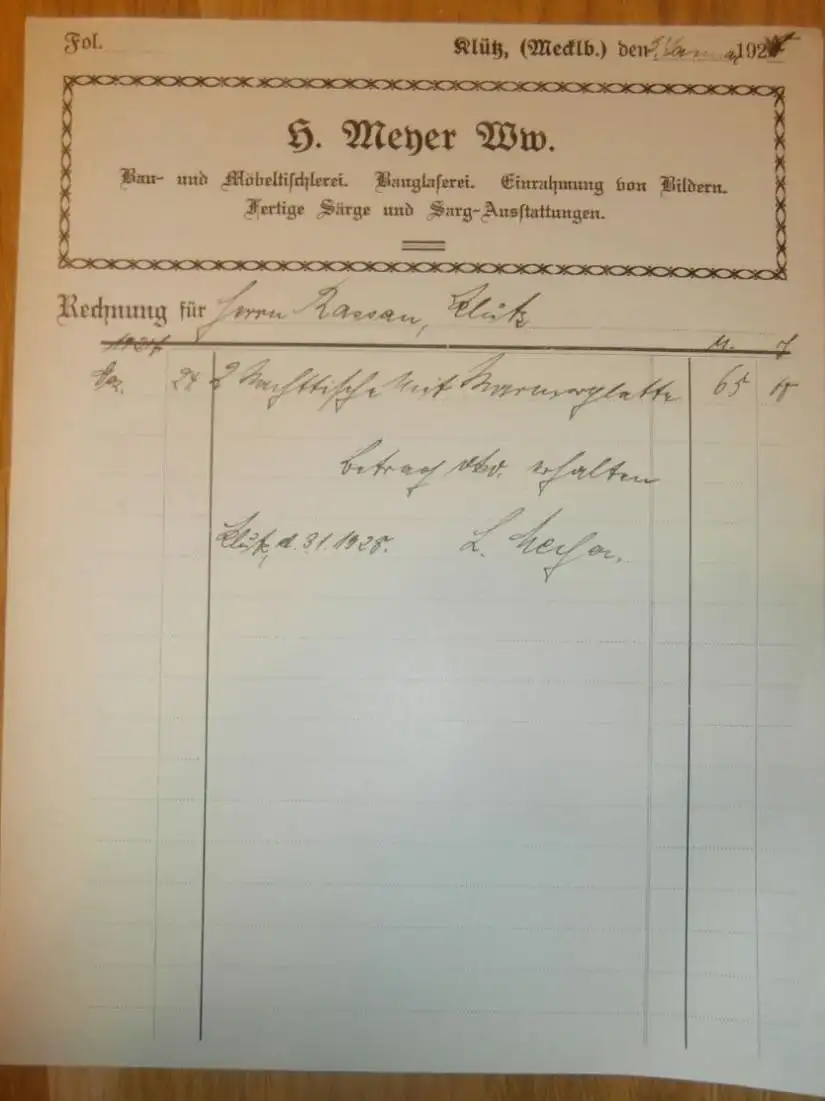 Fol.
Klütz, (Mecklb.) den 3. Januar 192
H. Meyer Ww.
Bau- und Möbeltischlerei. Bauglaserei. Einrahmung von Bildern.
Fertige Särge und Sarg-Ausstattungen.
Rechnung für Herrn Rassau, Klütz
M.
Dez. 24 2 Nachttische mit Marmorplatte 65
Betrag erhalten
Klütz, d. 3.1.1928. L. Meyer.